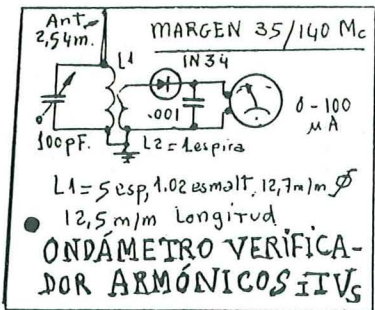 Ant.
2,54m.
MARGEN 35/140 Mc
L1
IN34
.001
0-100
μA
100pF.
L2=1espira
L1=5esp, 1.02 esmalt, 12,7m/m Ø
12,5m/m Longitud
ONDÁMETRO VERIFICA-
DOR ARMÓNICOS ITVs